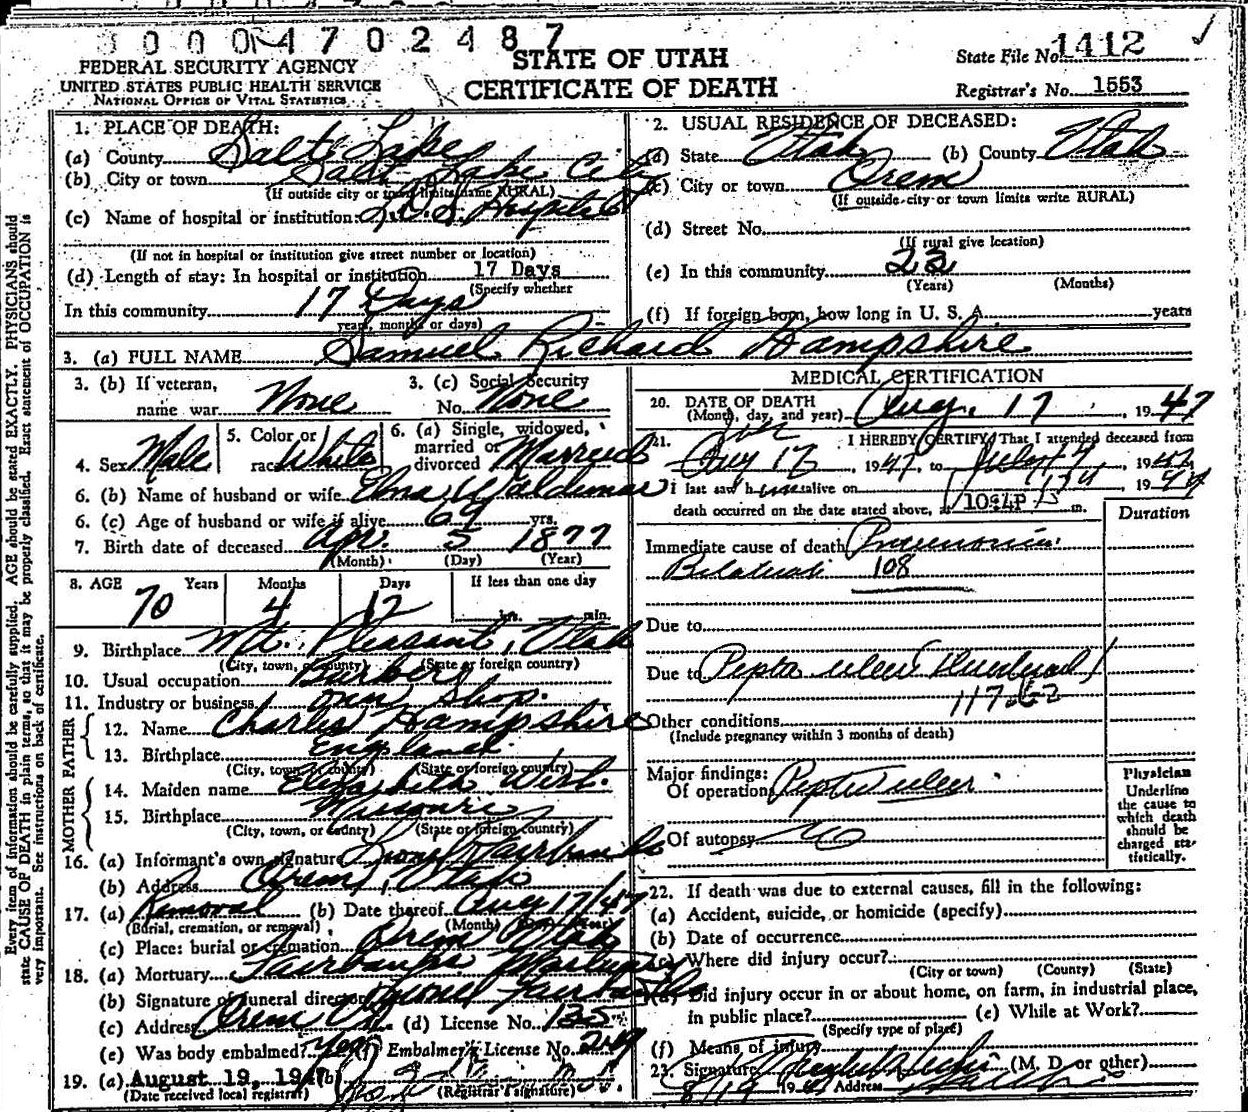 0004702487
STATE OF UTAH
CERTIFICATE OF DEATH
FEDERAL SECURITY AGENCY
UNITED STATES PUBLIC HEALTH SERVICE
NATIONAL OFFICE OF VITAL STATISTICS
State File No. 1412
Registrar's No. 1553
Every item of information should be carefully supplied. AGE should be stated EXACTLY. PHYSICIANS should
state CAUSE OF DEATH in plain terms, so that it may be properly classified. Exact statement of OCCUPATION is
very important. See instructions on back of certificate.
1. PLACE OF DEATH:
(a) County Salt Lake
(b) City or town Salt Lake City
(If outside city or town limits name RURAL)
(c) Name of hospital or institution: L.D.S. Hospital
(If not in hospital or institution give street number or location)
(d) Length of stay: In hospital or institution 17 Days
(Specify whether
In this community 17 Days
years, months or days)
2. USUAL RESIDENCE OF DECEASED:
(a) State Utah (b) County Utah
(c) City or town Orem
(If outside city or town limits write RURAL)
(d) Street No.
(If rural give location)
(e) In this community 23
(Years) (Months)
(f) If foreign born, how long in U. S. A. years
3. (a) FULL NAME Samuel Richard Hampshire
3. (b) If veteran, name war None
3. (c) Social Security No. None
4. Sex Male
5. Color or race White
6. (a) Single, widowed, married or divorced Married
6. (b) Name of husband or wife Waldemar
6. (c) Age of husband or wife if alive 64 yrs.
7. Birth date of deceased Apr. 5 1877
(Month) (Day) (Year)
8. AGE Years Months Days If less than one day
70 4 12 hrs. min.
9. Birthplace Mt. Pleasant, Utah
(City, town, or county) (State or foreign country)
10. Usual occupation Barber
11. Industry or business own shop.
FATHER
12. Name Charles Hampshire
13. Birthplace England
(City, town, or county) (State or foreign country)
MOTHER
14. Maiden name Elizabeth West.
15. Birthplace Missouri
(City, town, or county) (State or foreign country)
16. (a) Informant's own signature Fairbanks
(b) Address Orem, Utah
17. (a) Removal (b) Date thereof Aug 17/47
(Burial, cremation, or removal) (Month) (Day) (Year)
(c) Place: burial or cremation Orem Utah
18. (a) Mortuary Fairbanks Mortuary
(b) Signature of funeral director Lyonel Fairbanks
(c) Address Orem Ut (d) License No. 135
(e) Was body embalmed? Yes (f) Embalmer's License No. 249
19. (a) August 19, 1947 (b)
(Date received local registrar) (Registrar's signature)
MEDICAL CERTIFICATION
20. DATE OF DEATH
(Month, day, and year) Aug. 17, 1947
21. I HEREBY CERTIFY, That I attended deceased from
Aug 17, 1947, to 1947
I last saw him alive on 1947
death occurred on the date stated above, at 10:4 P m.
Duration
Immediate cause of death Pneumonia
Bilateral 108
Due to
Due to Peptic ulcer (Duodenal)
117
Other conditions
(Include pregnancy within 3 months of death)
Major findings:
Of operation Peptic ulcer
Of autopsy No
Physician
Underline
the cause to
which death
should be
charged sta-
tistically.
22. If death was due to external causes, fill in the following:
(a) Accident, suicide, or homicide (specify)
(b) Date of occurrence
(c) Where did injury occur?
(City or town) (County) (State)
(d) Did injury occur in or about home, on farm, in industrial place,
in public place? (e) While at Work?
(Specify type of place)
(f) Means of injury
23. Signature (M. D. or other)
8/19 1947 Address